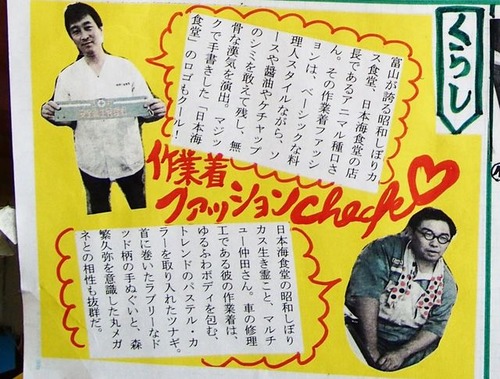 くらし
富山が誇る昭和しぼりカ
ス食堂、日本海食堂の店
長であるアニマル種口さ
ん。その作業着ファッシ
ョンは、ベーシックな料
理人スタイルながら、ソ
ースや醤油やケチャップ
のシミを敢えて残し、無
骨な漢気を演出。マジッ
クで手書きした「日本海
食堂」のロゴもクール！
作業着
ファッションcheck♡
日本海食堂の昭和しぼり
カス生き霊こと、マルチ
ュー仲田さん。車の修理
工である彼の作業着は、
ゆるふわボディを包む、
トレンドのパステル・カ
ラーを取り入れたツナギ。
首に巻いたラブリーなド
ッド柄の手ぬぐいと、森
繁久弥を意識した丸メガ
ネとの相性も抜群だ。